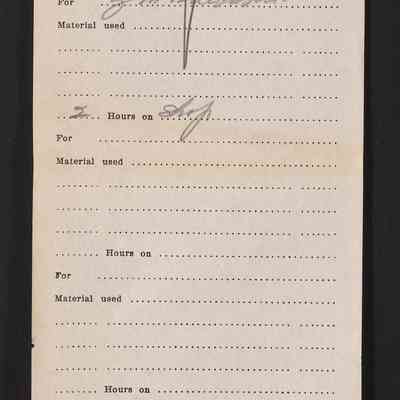 For
Material used
2 Hours on Shop
For
Material used
Hours on
For
Material used
Hours on